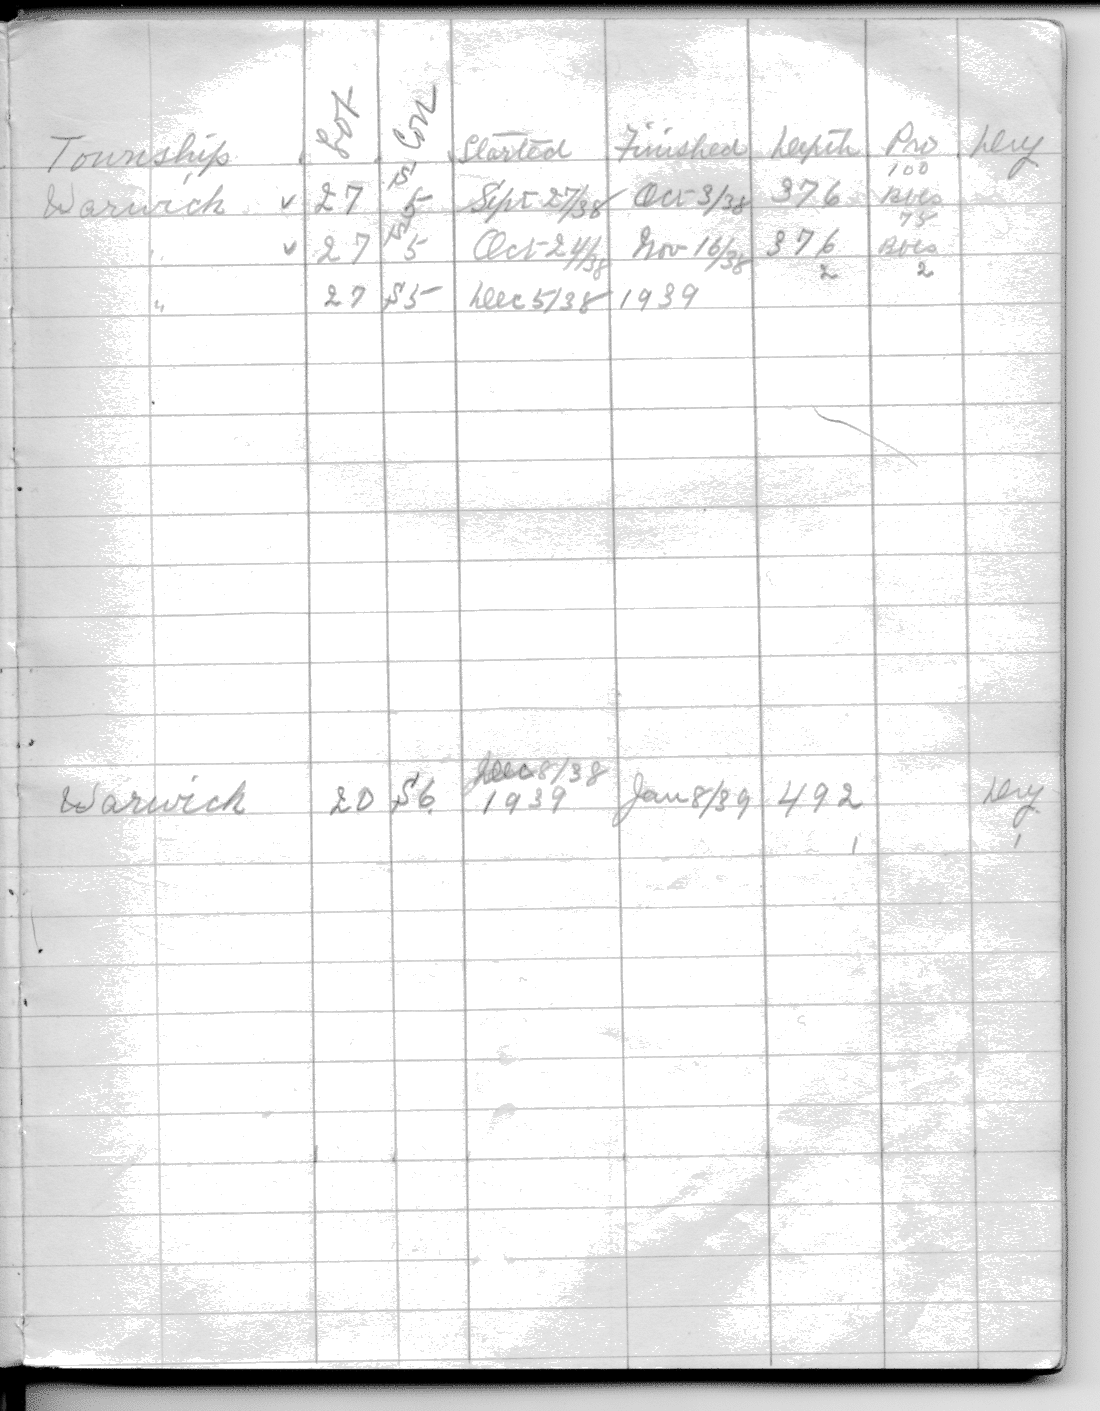 Township Lot Con Started Finished Depth Pro Dry
100
Warwick ✓ 27 S 5 Sept 27/38 Oct 3/38 376 BBls
75
" ✓ 27 S 5 Oct 24/38 Nov 16/38 376 BBls
2 2
" 27 S5 Dec 5/38 1939
Dec 8/38
Warwick 20 S6 1939 Jan 8/39 492 Dry
1 1